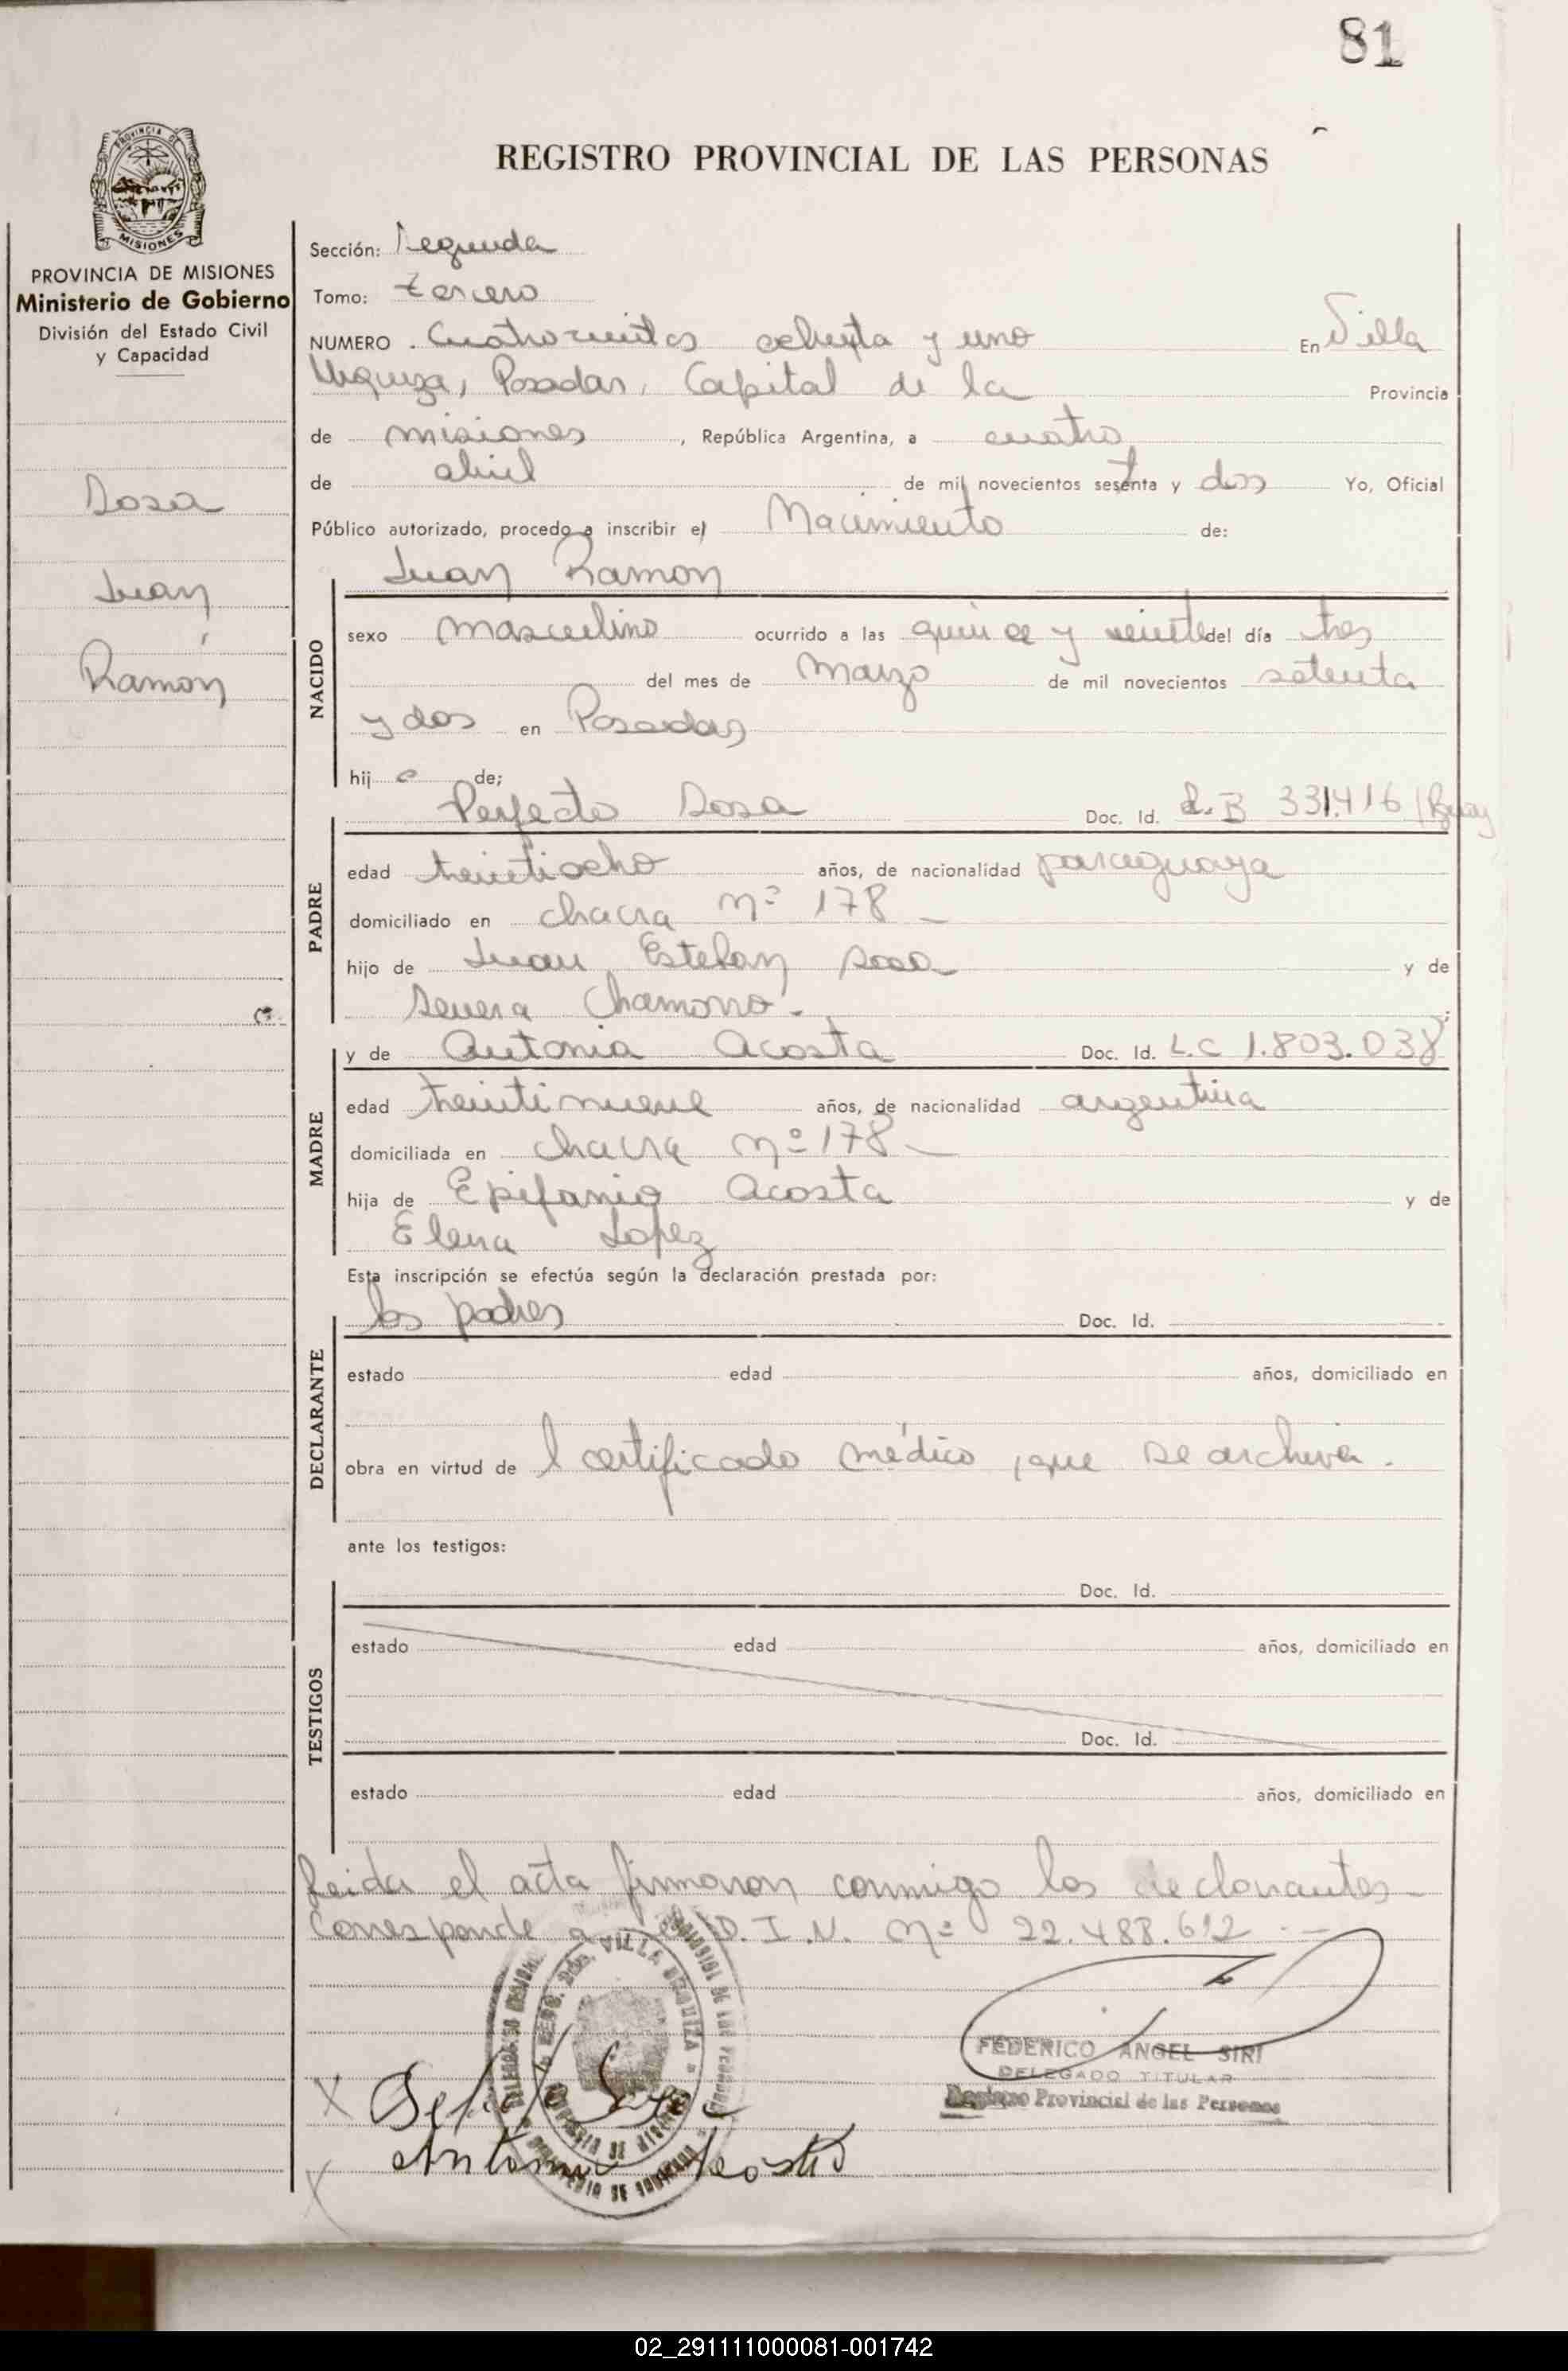 81
REGISTRO PROVINCIAL DE LAS PERSONAS
PROVINCIA DE
MISIONES
PROVINCIA DE MISIONES
Ministerio de Gobierno
División del Estado Civil
y Capacidad
Sosa
Juan
Ramón
Sección: Segunda
Tomo: tercero
NUMERO . Cuatrocientos ochenta y uno En Villa
Urquiza, Posadas, Capital de la Provincia
de misiones , República Argentina, a cuatro
de abril de mil novecientos setenta y dos Yo, Oficial
Público autorizado, procedo a inscribir el Nacimiento de:
Juan Ramon
NACIDO
sexo masculino ocurrido a las quince y veinte del día tres
del mes de Marzo de mil novecientos setenta
y dos en Posadas
hij o de;
PADRE
Perfecto Sosa Doc. Id. 331.416
edad treintiocho años, de nacionalidad paraguaya
domiciliado en chacra nº 178 -
hijo de Juan Esteban Sosa y de
Severa Chamorro.
MADRE
y de Antonia Acosta Doc. Id. L.C 1.803.038
edad treintinueve años, de nacionalidad argentina
domiciliada en chacra nº 178 -
hija de Epifanio Acosta y de
Elena Lopez
Esta inscripción se efectúa según la declaración prestada por:
DECLARANTE
los padres Doc. Id.
estado edad años, domiciliado en
obra en virtud de l certificado médico, que se archiva.
ante los testigos:
TESTIGOS
Doc. Id.
estado edad años, domiciliado en
Doc. Id.
estado edad años, domiciliado en
Leida el acta firmaron conmigo los declarantes -
Corresponde a D.I.N. nº 22.488.612 . -
VILLA URQUIZA
FEDERICO ANGEL SIRI
DELEGADO TITULAR
Registro Provincial de las Personas
X
Antonia Acosta
X
02_291111000081-001742